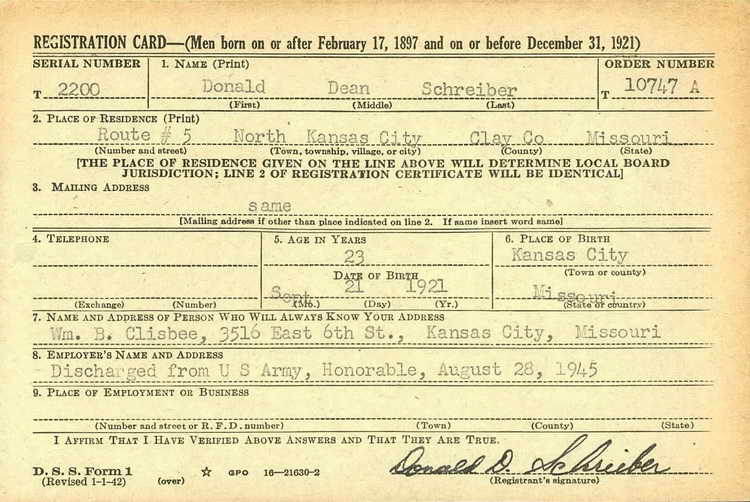 REGISTRATION CARD—(Men born on or after February 17, 1897 and on or before December 31, 1921)
SERIAL NUMBER 1. NAME (Print) ORDER NUMBER
T 2200 Donald Dean Schreiber T 10747 A
(First) (Middle) (Last)
2. PLACE OF RESIDENCE (Print)
Route # 5 North Kansas City Clay Co Missouri
(Number and street) (Town, township, village, or city) (County) (State)
[THE PLACE OF RESIDENCE GIVEN ON THE LINE ABOVE WILL DETERMINE LOCAL BOARD
JURISDICTION; LINE 2 OF REGISTRATION CERTIFICATE WILL BE IDENTICAL]
3. MAILING ADDRESS
same
[Mailing address if other than place indicated on line 2. If same insert word same]
4. TELEPHONE 5. AGE IN YEARS 6. PLACE OF BIRTH
23 Kansas City
(Town or county)
DATE OF BIRTH
Sept. 21 1921 Missouri
(Exchange) (Number) (Mo.) (Day) (Yr.) (State or country)
7. NAME AND ADDRESS OF PERSON WHO WILL ALWAYS KNOW YOUR ADDRESS
Wm. B. Clisbee, 3516 East 6th St., Kansas City, Missouri
8. EMPLOYER'S NAME AND ADDRESS
Discharged from U S Army, Honorable, August 28, 1945
9. PLACE OF EMPLOYMENT OR BUSINESS
(Number and street or R. F. D. number) (Town) (County) (State)
I AFFIRM THAT I HAVE VERIFIED ABOVE ANSWERS AND THAT THEY ARE TRUE.
D. S. S. Form 1 Donald D. Schreiber
(Revised 1-1-42) (over) ☆ GPO 16—21630-2 (Registrant's signature)